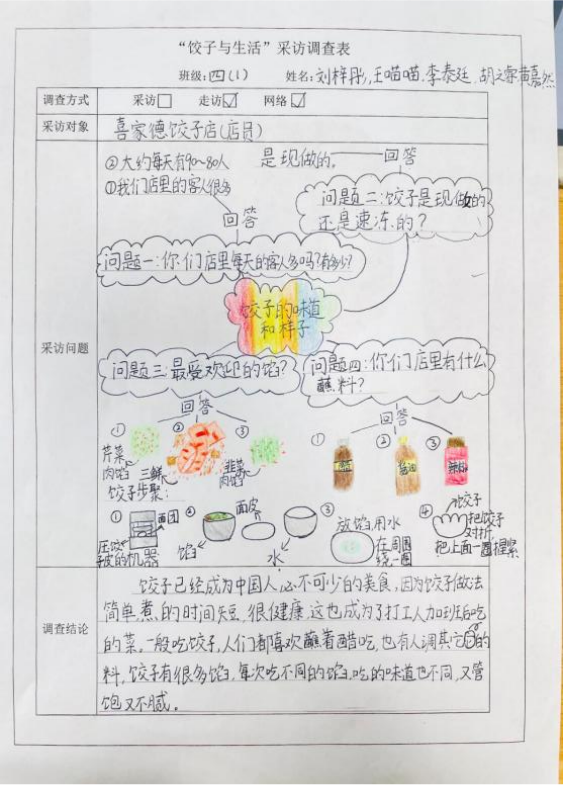 “饺子与生活”采访调查表
班级:四(1) 姓名:刘梓彤,王喵喵,李泰廷,胡文霏黄嘉然
调查方式 采访 走访 网络
采访对象 喜家德饺子店(店员)
采访问题
②大约每天有90~80人
①我们店里的客人很多
回答
问题一:你们店里每天的客人多吗?有多少?
是现做的。 回答
问题二:饺子是现做的
还是速冻的?
饺子的味道
和样子
问题三:最受欢迎的馅?
回答
① ② ③
芹菜
肉馅
三鲜
韭菜
肉馅
问题四:你们店里有什么
蘸料?
回答
① ② ③
酱油
辣椒
饺子步聚:
① 面团
压饺
子皮的机器
② 面皮
馅
水
③ 放馅用水
在周围
绕一圈
④ 饺子
把饺子
对折,
把上面一圈捏紧
调查结论
饺子已经成为中国人必不可少的美食,因为饺子做法
简单,煮的时间短,很健康,这也成为了打工人加班后吃
的菜。一般吃饺子,人们都喜欢蘸着醋吃,也有人调其它的
料,饺子有很多馅,每次吃不同的馅,吃的味道也不同,又管
饱又不腻。